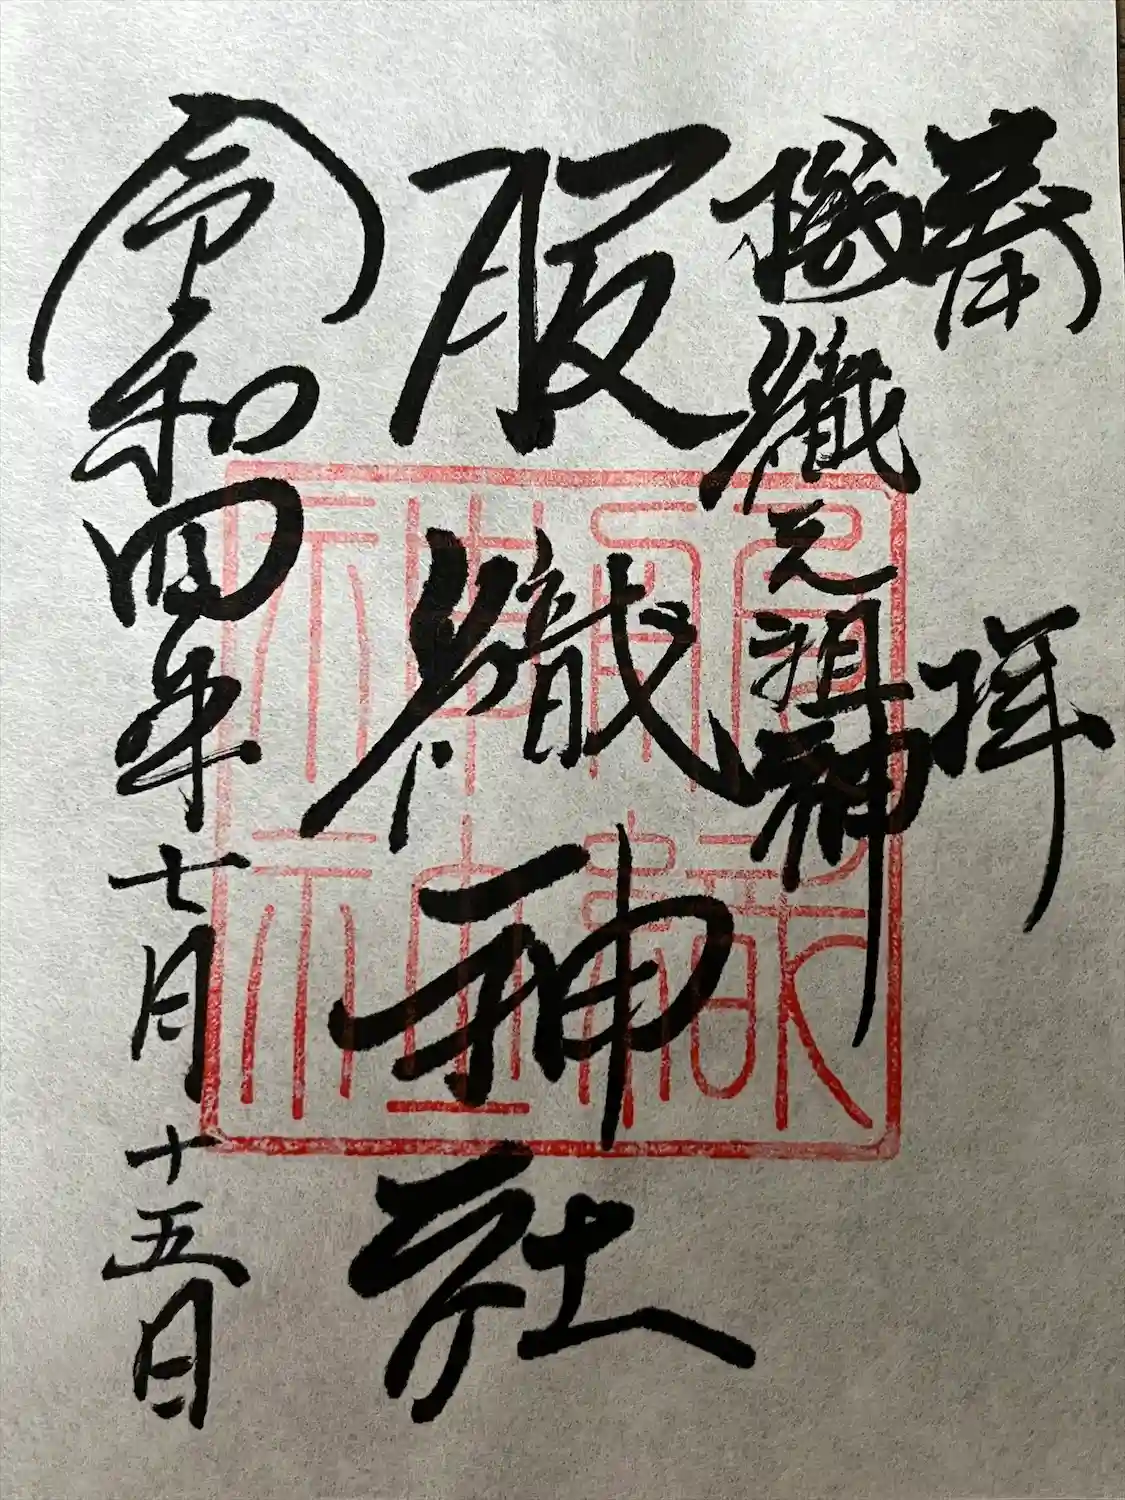 奉拝
機織元祖神
服織神社
令和四年七月十五日
服織神社